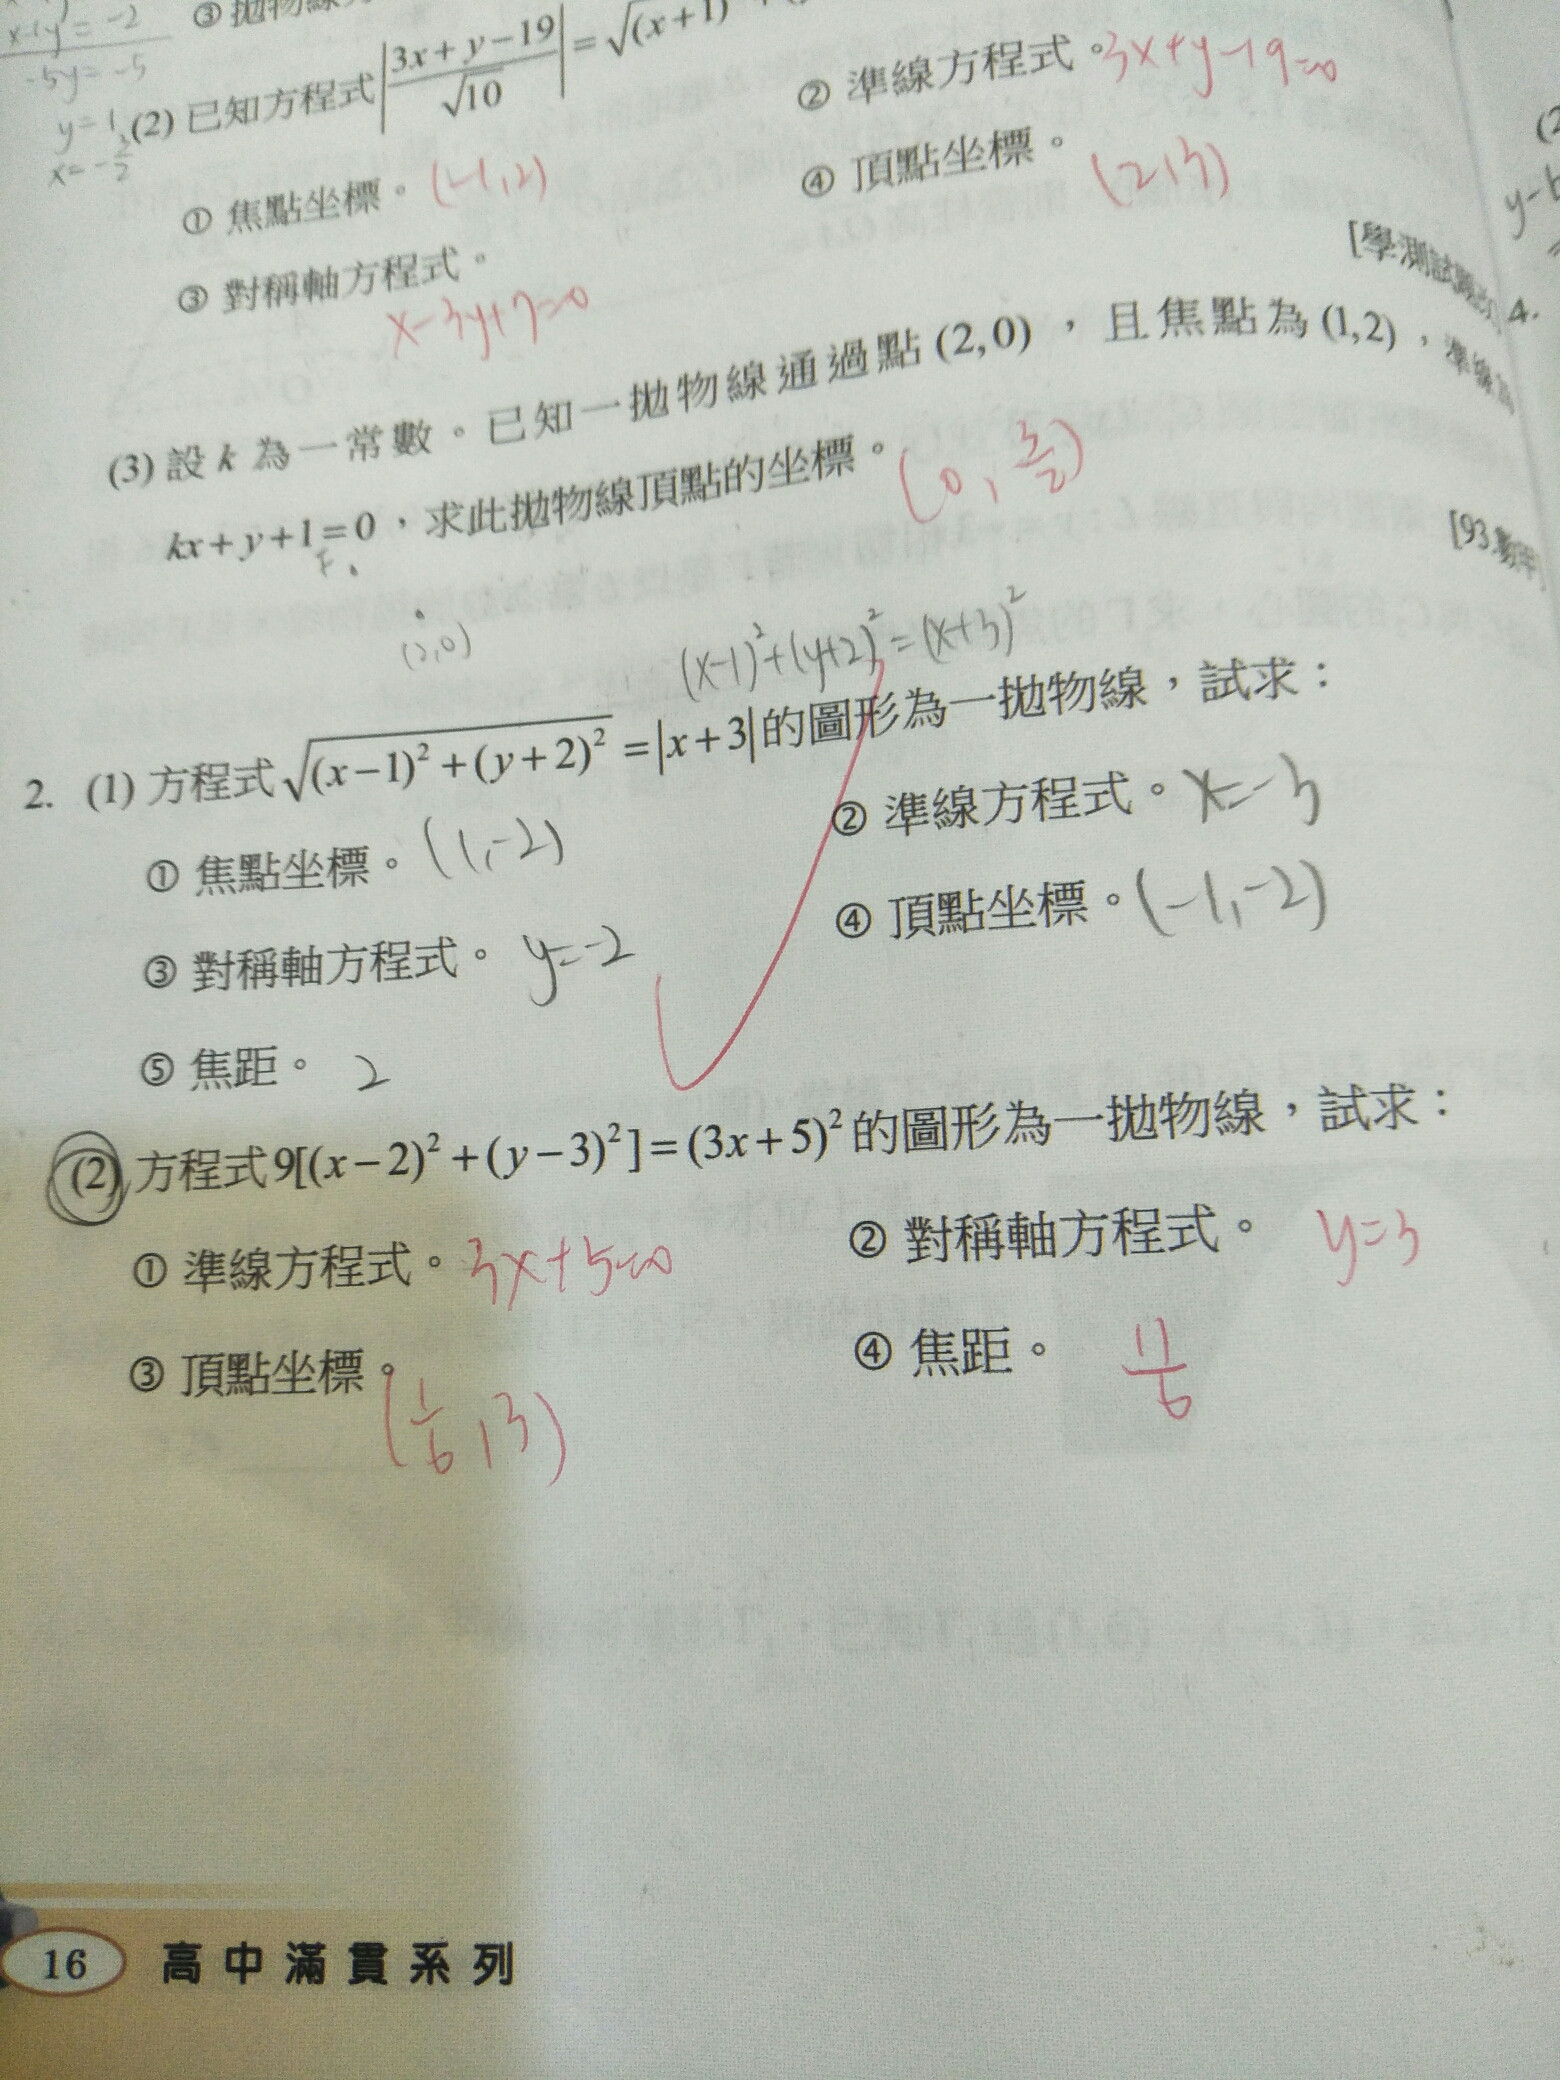 x+y=-2
-5y=-5
y=1
③ 拋物線
(2) 已知方程式|3x+y-19/√10|=√(x+1)
① 焦點坐標。(-1,2)
② 準線方程式。3x+y-19=0
③ 對稱軸方程式。x-3y+7=0
④ 頂點坐標。(2,3)
[學測試題
(3) 設 k 為一常數。已知一拋物線通過點 (2,0) ,且焦點為 (1,2) ,準線為
kx+y+1=0,求此拋物線頂點的坐標。(0, 3/2)
[93.
F
(2,0)
(x-1)²+(y+2)²=(x+3)²
2. (1) 方程式√(x-1)²+(y+2)² =|x+3|的圖形為一拋物線,試求:
① 焦點坐標。(1,-2)
② 準線方程式。x=-3
③ 對稱軸方程式。y=-2
④ 頂點坐標。(-1,-2)
⑤ 焦距。2
(2) 方程式9[(x-2)²+(y-3)²]=(3x+5)²的圖形為一拋物線,試求:
① 準線方程式。3x+5=0
② 對稱軸方程式。y=3
③ 頂點坐標。(1/6, 3)
④ 焦距。11/6
4.
16 高中滿貫系列